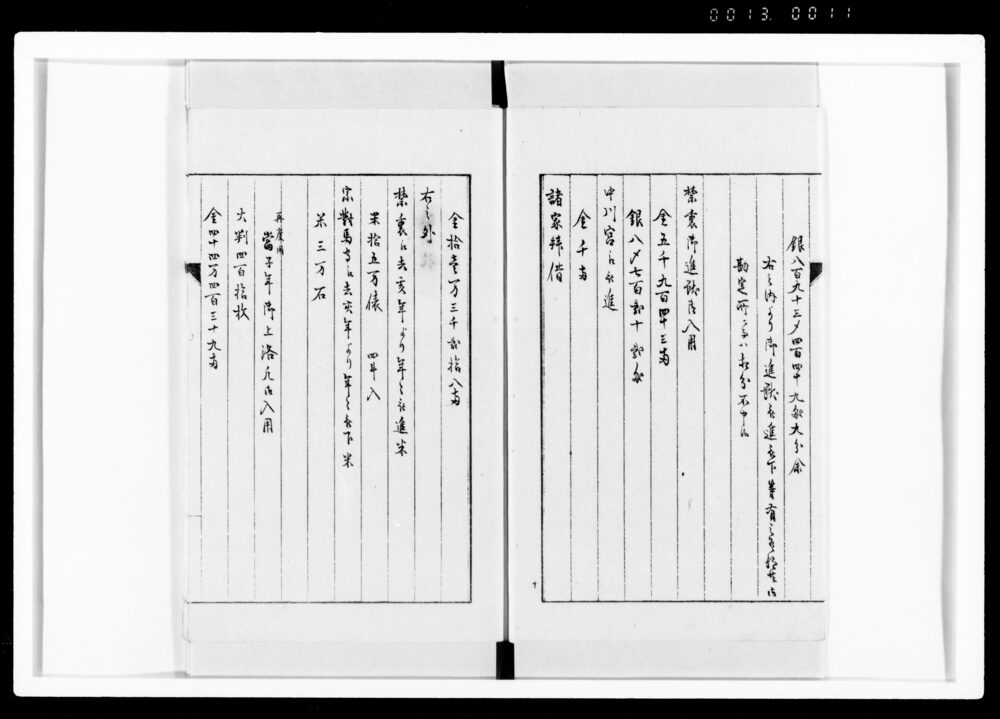 0013 0011
銀八百九十三〆四百四十九匁六分余
右之内より御進献被進被下等有之
勘定所二而ハ
禁裏御進献居入用
金五千九百四十三両
銀八〆七百弐十弐匁
中川宮江被進
金千両
諸家拝借
金拾壱万三千弐拾八両
右之外
禁裏江去亥年より年々被進米
米拾五万俵 四斗入
宗對馬守江去亥年より年々被下米
米三万石
再度用
當子年御上洛凡御入用
大判四百拾枚
金四十四万四百三十九両